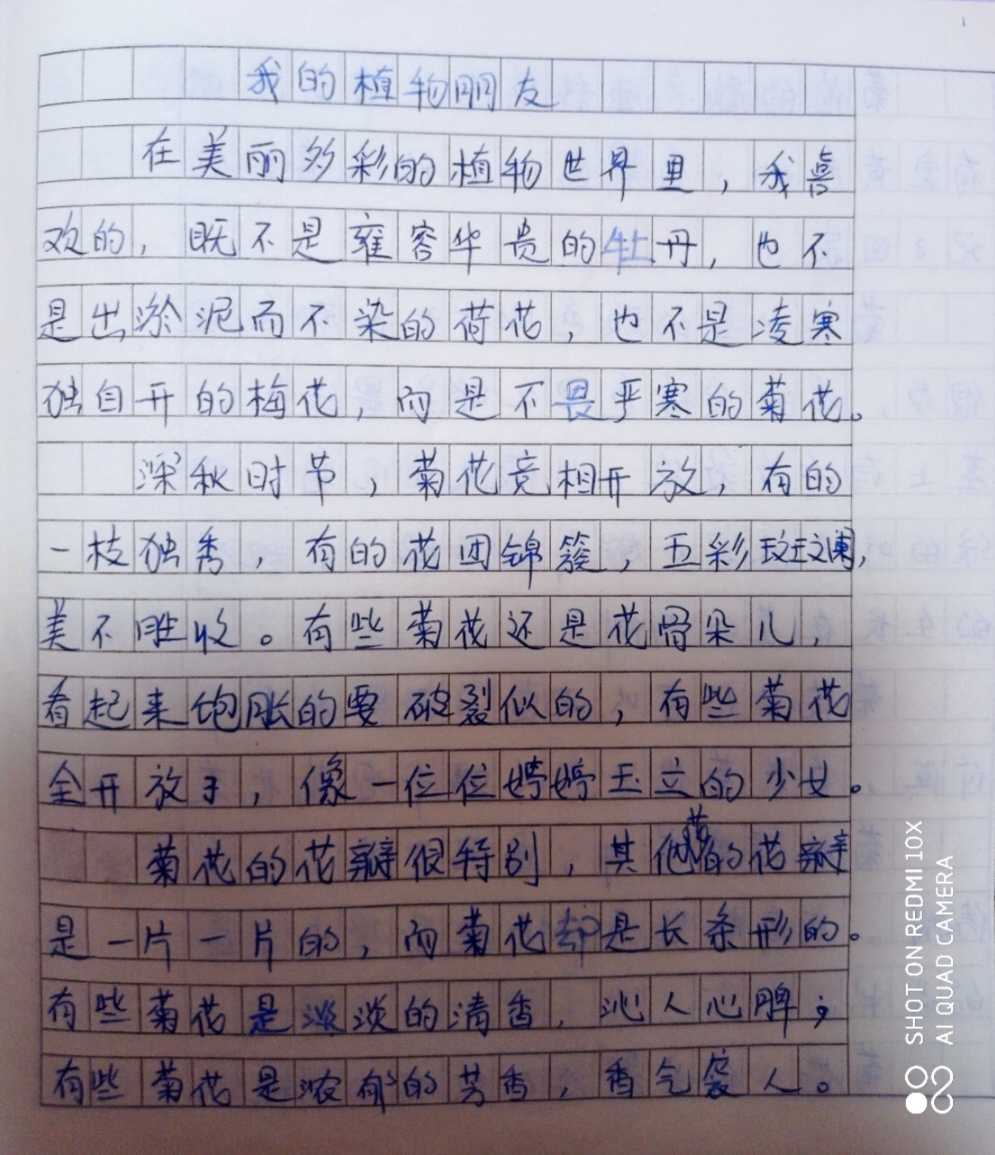 我的植物朋友
在美丽多彩的植物世界里，我喜
欢的，既不是雍容华贵的牡丹，也不
是出淤泥而不染的荷花，也不是凌寒
独自开的梅花，而是不畏严寒的菊花。
深秋时节，菊花竞相开放，有的
一枝独秀，有的花团锦簇，五彩斑斓，
美不胜收。有些菊花还是花骨朵儿，
看起来饱胀的要破裂似的，有些菊花
全开放了，像一位位婷婷玉立的少女。
菊花的花瓣很特别，其他花的花瓣
是一片一片的，而菊花却是长条形的。
有些菊花是淡淡的清香，沁人心脾；
有些菊花是浓郁的芳香，香气袭人。
SHOT ON REDMI 10X
AI QUAD CAMERA